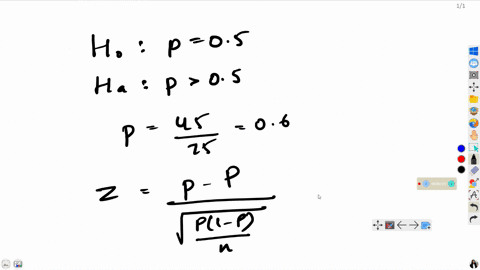 1/1
H₀ : p = 0.5
Ha : p > 0.5
p = 45/25 = 0.6
z = p - P / √(P(1-P)/n)